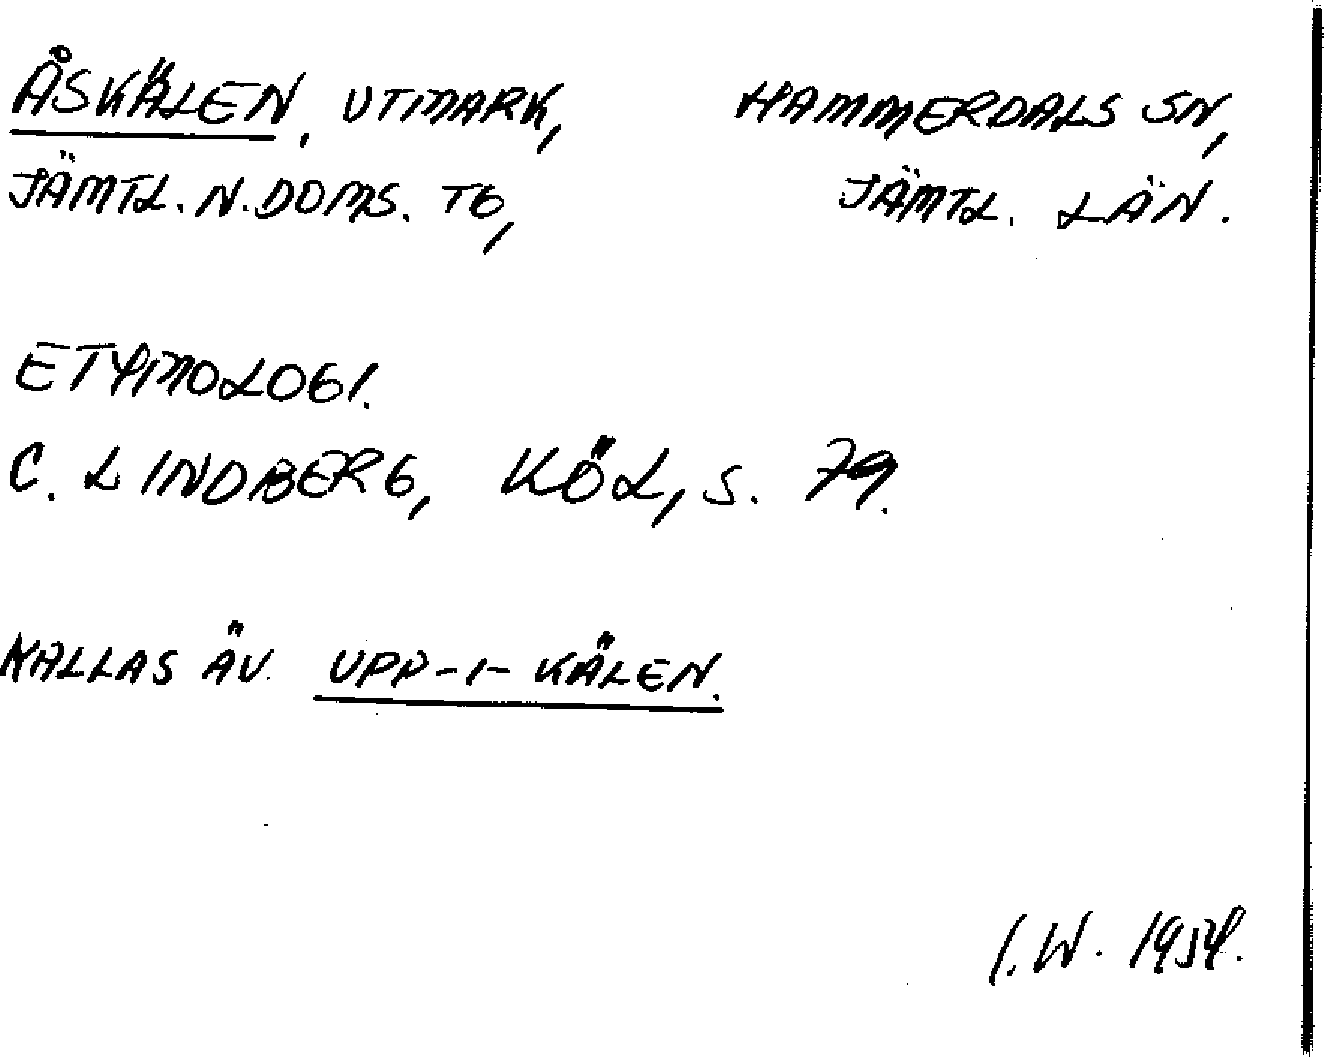 ÅSKÄLEN, UTMARK, HAMMERDALS SN,
JÄMTL. N. DOMS. TG, JÄMTL. LÄN.
ETYMOLOGI.
C. LINDBERG, KÖL, S. 79.
KALLAS ÄV. UPP-I-KÄLEN.
I.W. 1954.